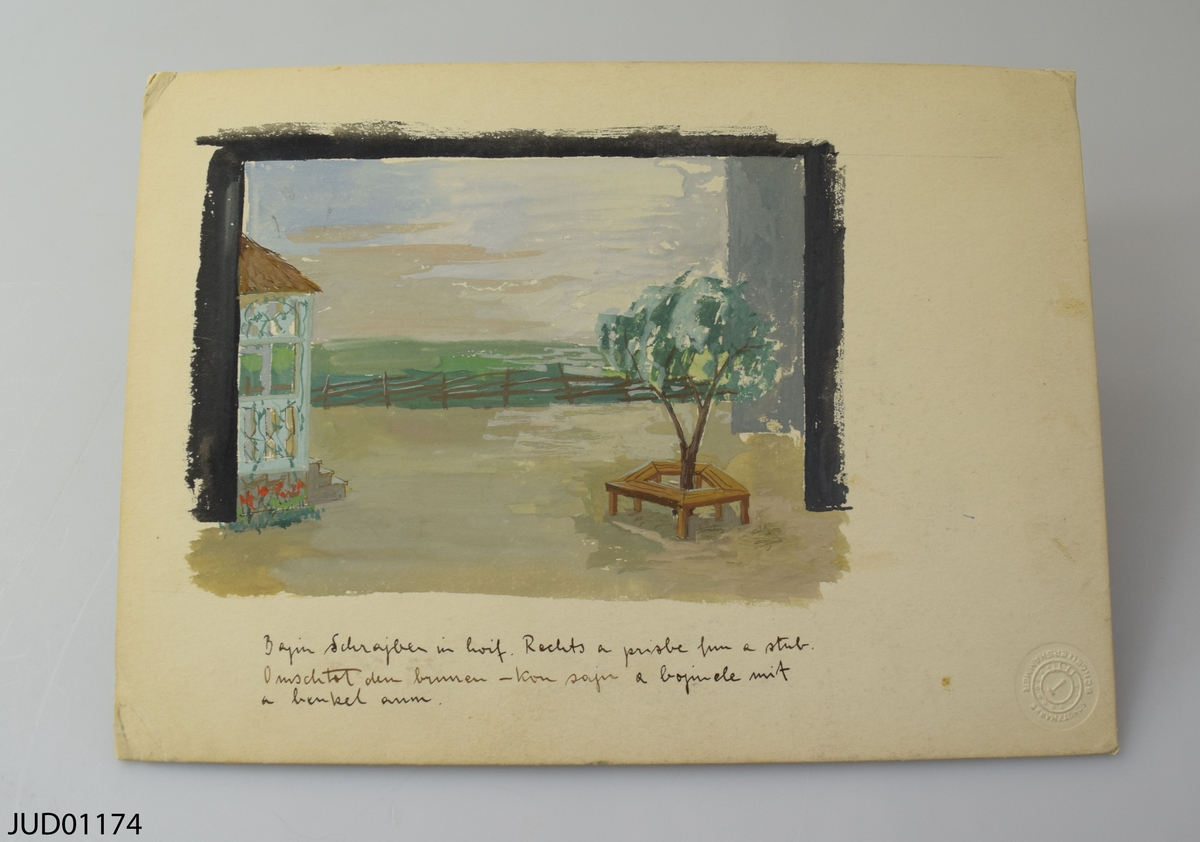 Bajm Schrajber in hoif. Rechts a prisbe fun a stub.
Omschtot dem brunen – kon sajn a bojmele mit
a benkel arum.
JUD01174